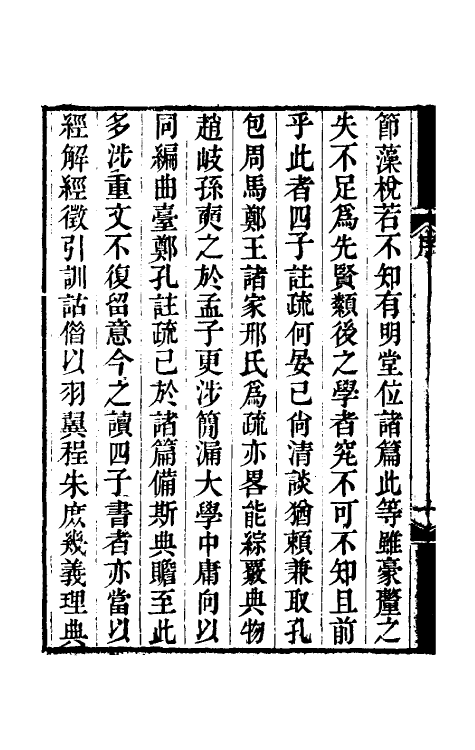 節藻梲若不知有明堂位諸篇此等雖豪釐之
失不足爲先賢纇後之學者究不可不知且前
乎此者四子註疏何晏已尙清談猶賴兼取孔
包周馬鄭王諸家邢氏爲疏亦畧能綜覈典物
趙岐孫奭之於孟子更涉簡漏大學中庸向以
同編曲臺鄭孔註疏已於諸篇備斯典贍至此
多涉重文不復留意今之讀四子書者亦當以
經解經徵引訓詁偕以羽翼程朱庶幾義理典
序